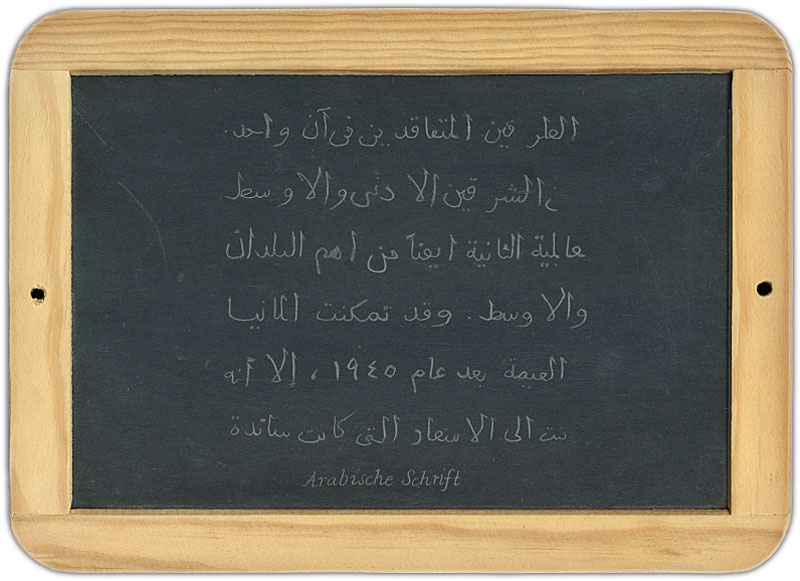 الطرفين المتعاقدين في آن واحد.
ن الشرقين الادنى والاوسط
عالمية الثانية ايضآ من اهم البلدان
والاوسط. وقد تمكنت المانيا
بعد عام ١٩٤٥، إلا أنه
نت الى الاسعار التى كانت سائدة
Arabische Schrift